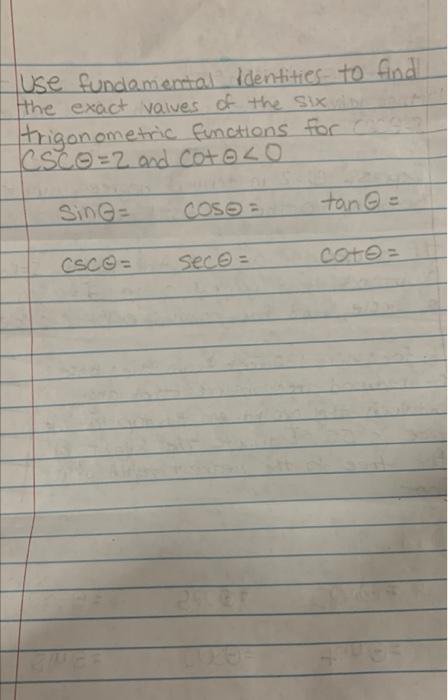 Use fundamental Identities to find
the exact values of the six
trigonometric functions for
CSCΘ=2 and CotΘ<0
SinΘ= COSΘ= tanΘ=
cscΘ= secΘ= cotΘ=